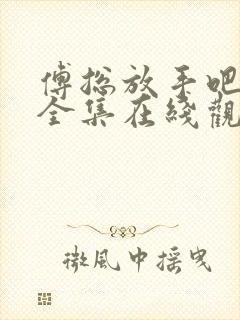 傅總放手吧
全集在綫觀
微風中摇曳